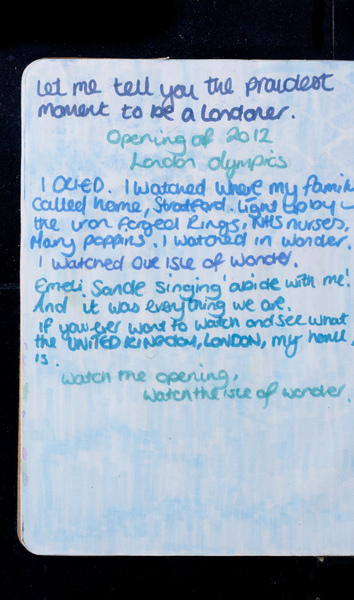 Let me tell you the proudest
moment to be a Londoner.
Opening of 2012
London Olympics
I CRIED. I watched where my family
called home, Stratford. Light up by
the iron forged Rings, NHS nurses,
Mary Poppins. I watched in wonder.
I watched our isle of wonder.
Emeli Sande singing 'abide with me'.
And it was everything we are.
If you ever want to watch and see what
the UNITED KINGDOM, LONDON, my home,
is.
Watch the opening,
Watch the isle of wonder.